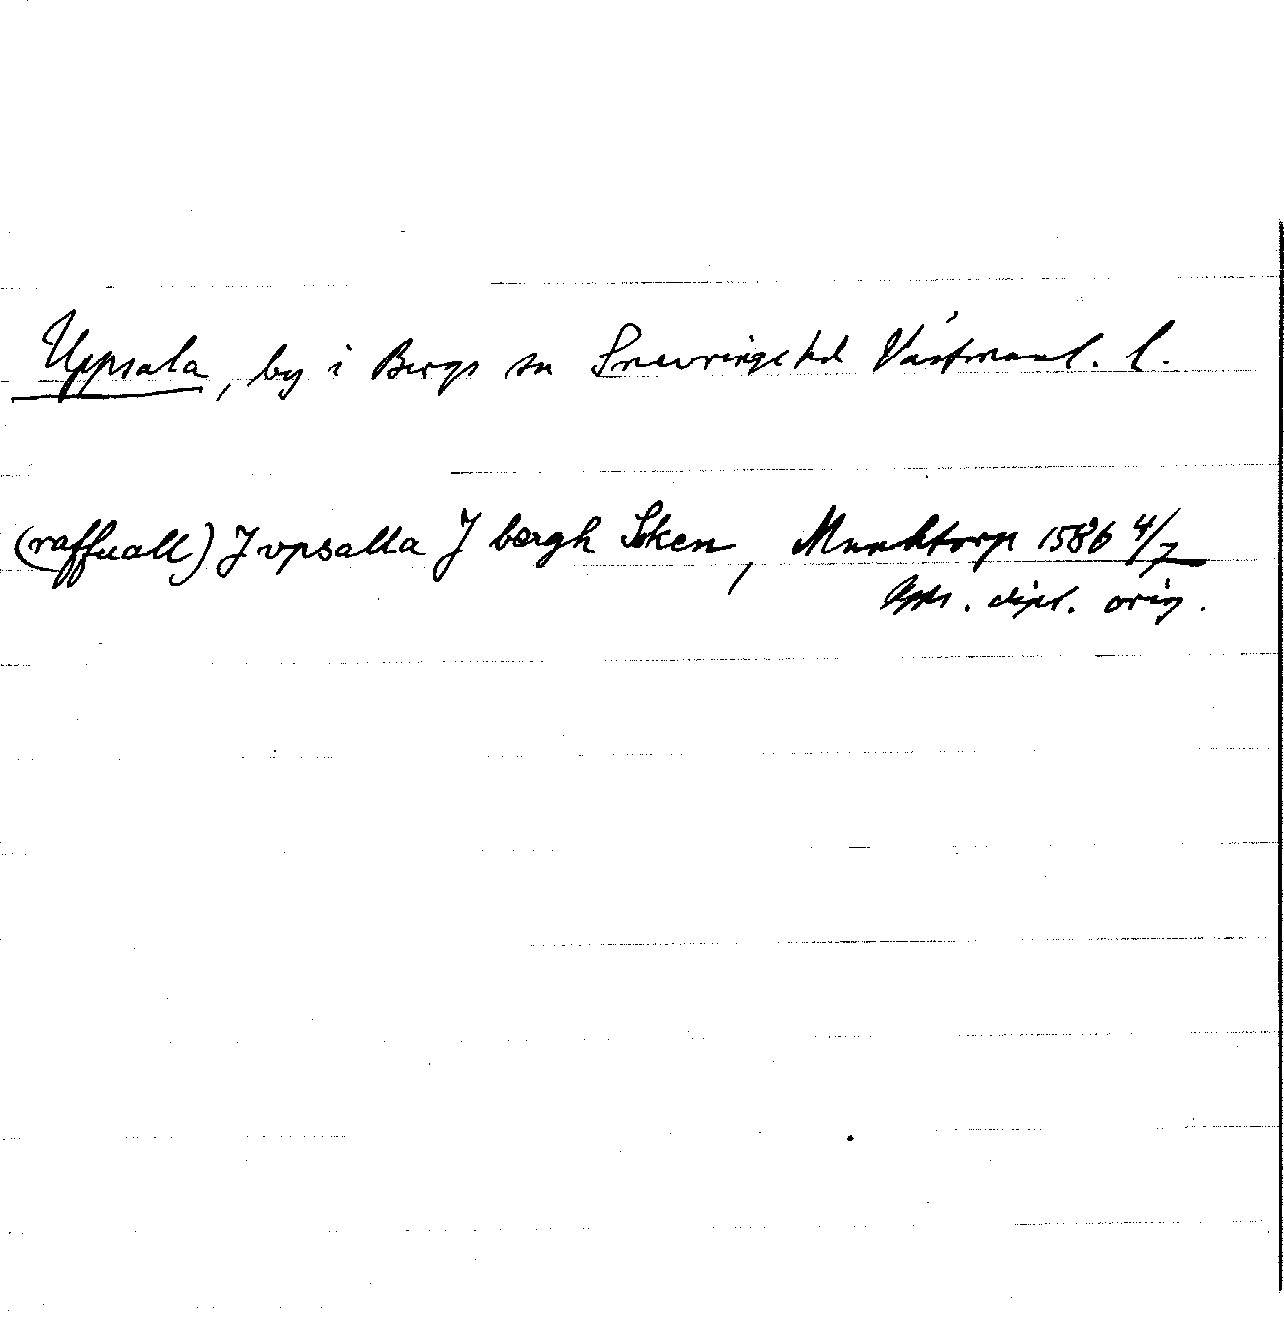 Uppsala, by i Bergs sn Snevringe hd Västmanl. l.
(raffuall) J vpsalla J bærgh Soken, Munktorp 1586 4/7
Upps. dipl. orig.